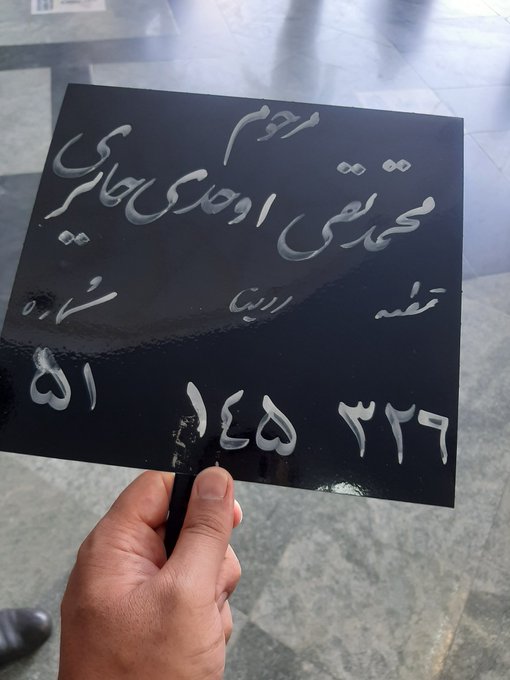 مرحوم
محمدتقی اوحدی حایری
قطعه ردیف شماره
۳۲۹ ۱۴۵ ۵۱